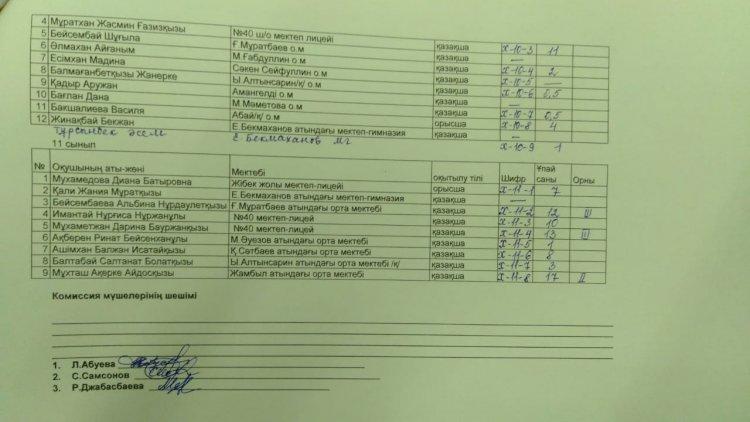 4 Мұратхан Жасмин Ғазизқызы №40 ш/о мектеп лицейі қазақша х-10-3 11
5 Бейсембай Шұғыла Ғ.Мұратбаев о.м қазақша —
6 Әлмахан Айғаным М.Ғабдуллин о.м қазақша х-10-4 2
7 Есімхан Мадина Сәкен Сейфуллин о.м қазақша х-10-5 —
8 Балмағанбетқызы Жанерке Ы.Алтынсарин/қ/ о.м қазақша х-10-6 0,5
9 Қадыр Аружан Амангелді о.м қазақша —
10 Бағлан Дана М.Мәметова о.м қазақша х-10-7 0,5
11 Бакшалиева Василя Абай/қ/ о.м орысша х-10-8 4
12 Жинақбай Бекжан Е.Бекмаханов атындағы мектеп-гимназия қазақша —
Тұрсынбек Әсем Е Бекмаханов мг х-10-9 1
11 сынып
№ Оқушының аты-жөні Мектебі оқытылу тілі Шифр Ұпай саны Орны
1 Мухамедова Диана Батыровна Жібек жолы мектеп-лицейі орысша х-11-1 7
2 Қали Жания Мұратқызы Е.Бекмаханов атындағы мектеп-гимназия қазақша —
3 Бейсембаева Альбина Нұрдаулетқызы Ғ.Мұратбаев атындағы орта мектебі қазақша х-11-2 12 III
4 Имантай Нұрғиса Нұржанұлы №40 мектеп-лицейі қазақша х-11-3 10
5 Мұхаметжан Дарина Бауржанқызы №40 мектеп-лицейі қазақша х-11-4 13 III
6 Ақберен Ринат Бейсенханұлы М.Әуезов атындағы орта мектебі қазақша х-11-5 1
7 Ашімхан Балжан Исатайқызы Қ.Сәтбаев атындағы орта мектебі қазақша х-11-6 8
8 Балтабай Салтанат Болатқызы Ы.Алтынсарин атындағы орта мектебі /қ/ қазақша х-11-7 3
9 Мұхташ Ақерке Айдосқызы Жамбыл атындағы орта мектебі қазақша х-11-8 17 II
Комиссия мүшелерінің шешімі
1. Л.Абуева
2. С.Самсонов
3. Р.Джабасбаева